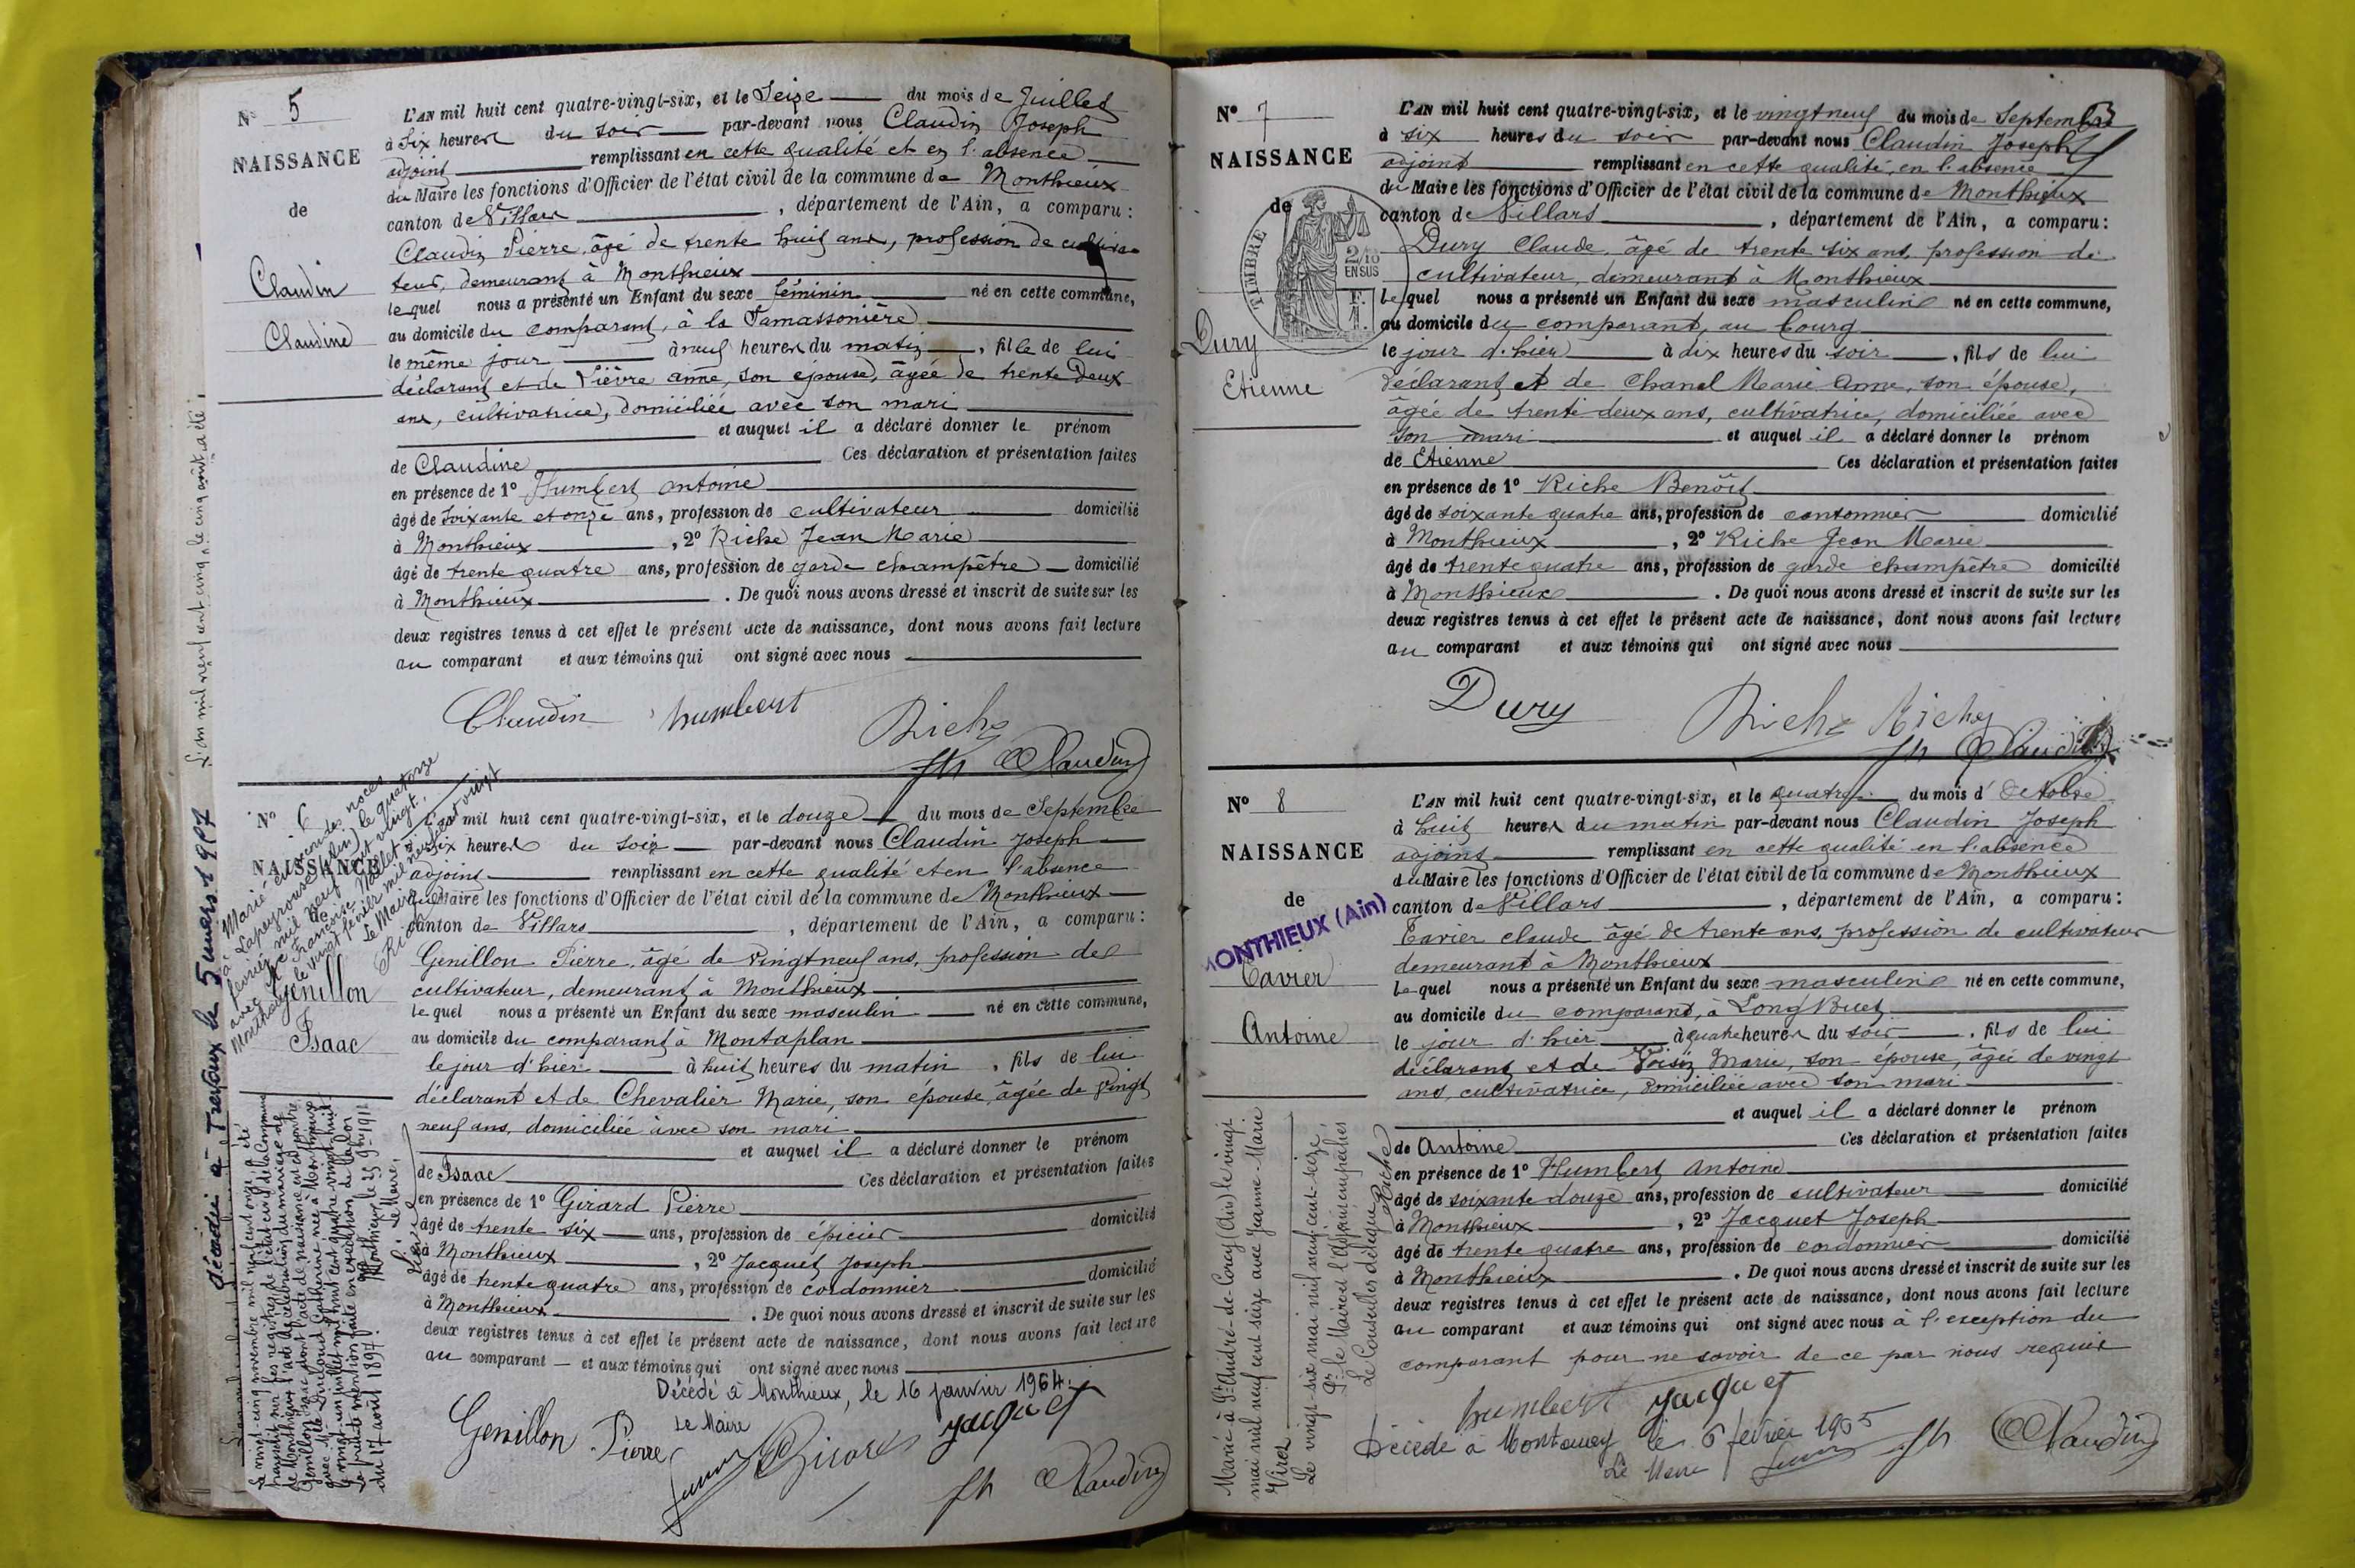 N° 5
NAISSANCE
de
Claudin
Claudine
L'AN mil huit cent quatre-vingt-six, et le Seize du mois de Juillet
à Six heures du soir par-devant nous Claudin Joseph
adjoint remplissant en cette qualité et en l'absence
du Maire les fonctions d'Officier de l'état civil de la commune de Monthieux
canton de Villars , département de l'Ain, a comparu :
Claudin Pierre, âgé de trente huit ans, profession de cultiva-
teur, demeurant à Monthieux
lequel nous a présenté un Enfant du sexe féminin né en cette commune,
au domicile du comparant, à la Tamassonière
le même jour à neuf heures du matin , fille de lui
déclarant et de Vièvre anne, son epouse, âgée de trente deux
ans, cultivatrice, domiciliée avec son mari
et auquel il a déclaré donner le prénom
de Claudine Ces déclaration et présentation faites
en présence de 1° Humbert antoine
âgé de Soixante et onze ans, profession de cultivateur domicilié
à Monthieux , 2° Riche Jean Marie
âgé de trente quatre ans, profession de garde champêtre domicilié
à Monthieux . De quoi nous avons dressé et inscrit de suite sur les
deux registres tenus à cet effet le présent acte de naissance, dont nous avons fait lecture
au comparant et aux témoins qui ont signé avec nous
Claudin humbert Riche
Jh Claudin
décédée à Trévoux le 5
L'an mil neuf cent cinq, le cinq août a été
N° 6
NAISSANCE
de
Genillon
Isaac
Marié en secondes noces
à Lapeyrouse (Ain) le quatorze
février mil neuf cent vingt
avec Françoise
Monthieux le vingt février mil neuf cent vingt
Le Maire
L'an mil huit cent quatre-vingt-six, et le douze du mois de Septembre
à Six heures du soir par-devant nous Claudin Joseph
adjoint remplissant en cette qualité et en l'absence
du Maire les fonctions d'Officier de l'état civil de la commune de Monthieux
canton de Villars , département de l'Ain, a comparu :
Genillon Pierre, âgé de vingt neuf ans, profession de
cultivateur, demeurant à Monthieux
lequel nous a présenté un Enfant du sexe masculin né en cette commune,
au domicile du comparant à Montaplan
le jour d'hier à huit heures du matin , fils de lui
déclarant et de Chevalier Marie, son épouse, âgée de vingt
neuf ans, domiciliée avec son mari
et auquel il a déclaré donner le prénom
de Isaac Ces déclaration et présentation faites
en présence de 1° Girard Pierre
âgé de trente six ans, profession de épicier domicilié
à Monthieux , 2° Jacquet Joseph
âgé de trente quatre ans, profession de cordonnier domicilié
à Monthieux . De quoi nous avons dressé et inscrit de suite sur les
deux registres tenus à cet effet le présent acte de naissance, dont nous avons fait lecture
au comparant et aux témoins qui ont signé avec nous
Décédé à Monthieux, le 16 janvier 1964.
Le Maire
Genillon Pierre Girard jacquet
Jh Claudin
Le vingt-cinq novembre mil neuf cent onze, a été
transcrit sur les registres de l'état civil de la Commune
de Monthieux l'acte de célébration du mariage de
Genillon Isaac dont l'acte de naissance est ci-contre
avec Catherine née à Monthieux
le vingt-un juillet mil huit cent quatre vingt huit
La présente mention faite en exécution de la loi
du 17 août 1897. Monthieux le 25 9bre 1911
Le Maire,
N° 7
NAISSANCE
de
TIMBRE
2/10
EN SUS
Dury
Etienne
L'AN mil huit cent quatre-vingt-six, et le vingt neuf du mois de Septembre
à six heures du soir par-devant nous Claudin Joseph
adjoint remplissant en cette qualité, en l'absence
du Maire les fonctions d'Officier de l'état civil de la commune de Monthieux
canton de Villars , département de l'Ain, a comparu :
Dury Claude, âgé de trente six ans, profession de
cultivateur, demeurant à Monthieux
lequel nous a présenté un Enfant du sexe masculin né en cette commune,
au domicile du comparant, au bourg
le jour d'hier à dix heures du soir , fils de lui
déclarant et de Chanel Marie Anne, son épouse,
âgée de trente-deux ans, cultivatrice, domiciliée avec
son mari et auquel il a déclaré donner le prénom
de Etienne Ces déclaration et présentation faites
en présence de 1° Riche Benoît
âgé de soixante quatre ans, profession de cantonnier domicilié
à Monthieux , 2° Riche Jean Marie
âgé de trente quatre ans, profession de garde champêtre domicilié
à Monthieux . De quoi nous avons dressé et inscrit de suite sur les
deux registres tenus à cet effet le présent acte de naissance, dont nous avons fait lecture
au comparant et aux témoins qui ont signé avec nous
Dury Riche Riche
Jh Claudin
N° 8
NAISSANCE
de
MONTHIEUX (Ain)
Tavier
Antoine
L'AN mil huit cent quatre-vingt-six, et le quatre du mois d'Octobre
à huit heures du matin par-devant nous Claudin Joseph
adjoint remplissant en cette qualité en l'absence
du Maire les fonctions d'Officier de l'état civil de la commune de Monthieux
canton de Villars , département de l'Ain, a comparu :
Tavier claude âgé de trente ans, profession de cultivateur
demeurant à Monthieux
lequel nous a présenté un Enfant du sexe masculin né en cette commune,
au domicile du comparant, à
le jour d'hier à quatre heures du soir , fils de lui
déclarant et de Voisin Marie, son épouse, âgée de vingt
ans, cultivatrice, domiciliée avec son mari
et auquel il a déclaré donner le prénom
de Antoine Ces déclaration et présentation faites
en présence de 1° Humbert Antoine
âgé de soixante douze ans, profession de cultivateur domicilié
à Monthieux , 2° Jacquet Joseph
âgé de trente quatre ans, profession de cordonnier domicilié
à Monthieux . De quoi nous avons dressé et inscrit de suite sur les
deux registres tenus à cet effet le présent acte de naissance, dont nous avons fait lecture
au comparant et aux témoins qui ont signé avec nous à l'exception du
comparant pour ne savoir de ce par nous requis
humbert jacquet
Décédé à Montanay le 6 février 1965
Le Maire Jh Claudin
Marié à St-André-de-Corcy (Ain) le vingt
mai mil neuf cent seize avec Jeanne-Marie
Viret
Le vingt-six mai mil neuf cent-seize,
Pr le Maire et l'Adjoint empêchés
Le Conseiller délégué